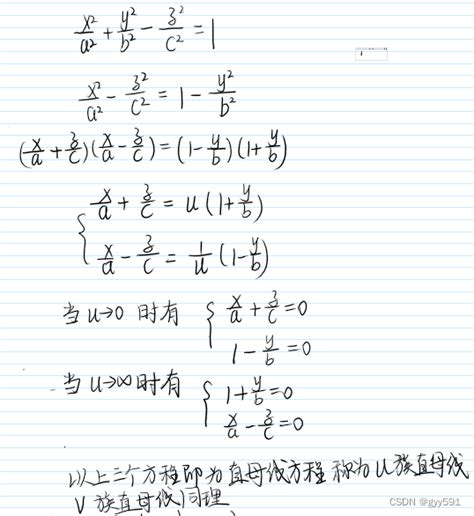 x²/a² + y²/b² - z²/c² = 1
x²/a² - z²/c² = 1 - y²/b²
(x/a + z/c)(x/a - z/c) = (1 - y/b)(1 + y/b)
{ x/a + z/c = u(1 + y/b)
x/a - z/c = 1/u (1 - y/b)
当 u→0 时有 { x/a + z/c = 0
1 - y/b = 0
当 u→∞时有 { 1 + y/b = 0
x/a - z/c = 0
以上三个方程即为直母线方程 称为 u族直母线
V 族直母线同理
CSDN @gyy591